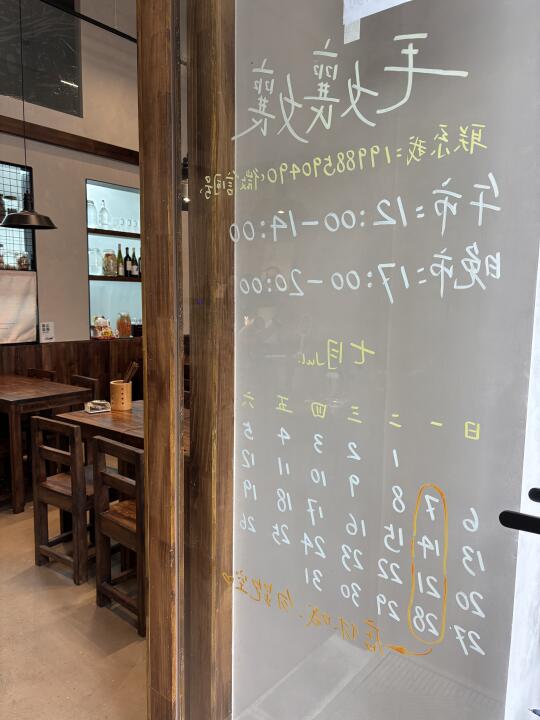 毛孃孃
联系我:19988590490(微信同号)
午市:12:00-14:00
晚市:17:00-20:00
七月Jul.
日 一 二 三 四 五 六
1 2 3 4 5
6 7 8 9 10 11 12
13 14 15 16 17 18 19
20 21 22 23 24 25 26
27 28 29 30 31
店休哦、勿跑空